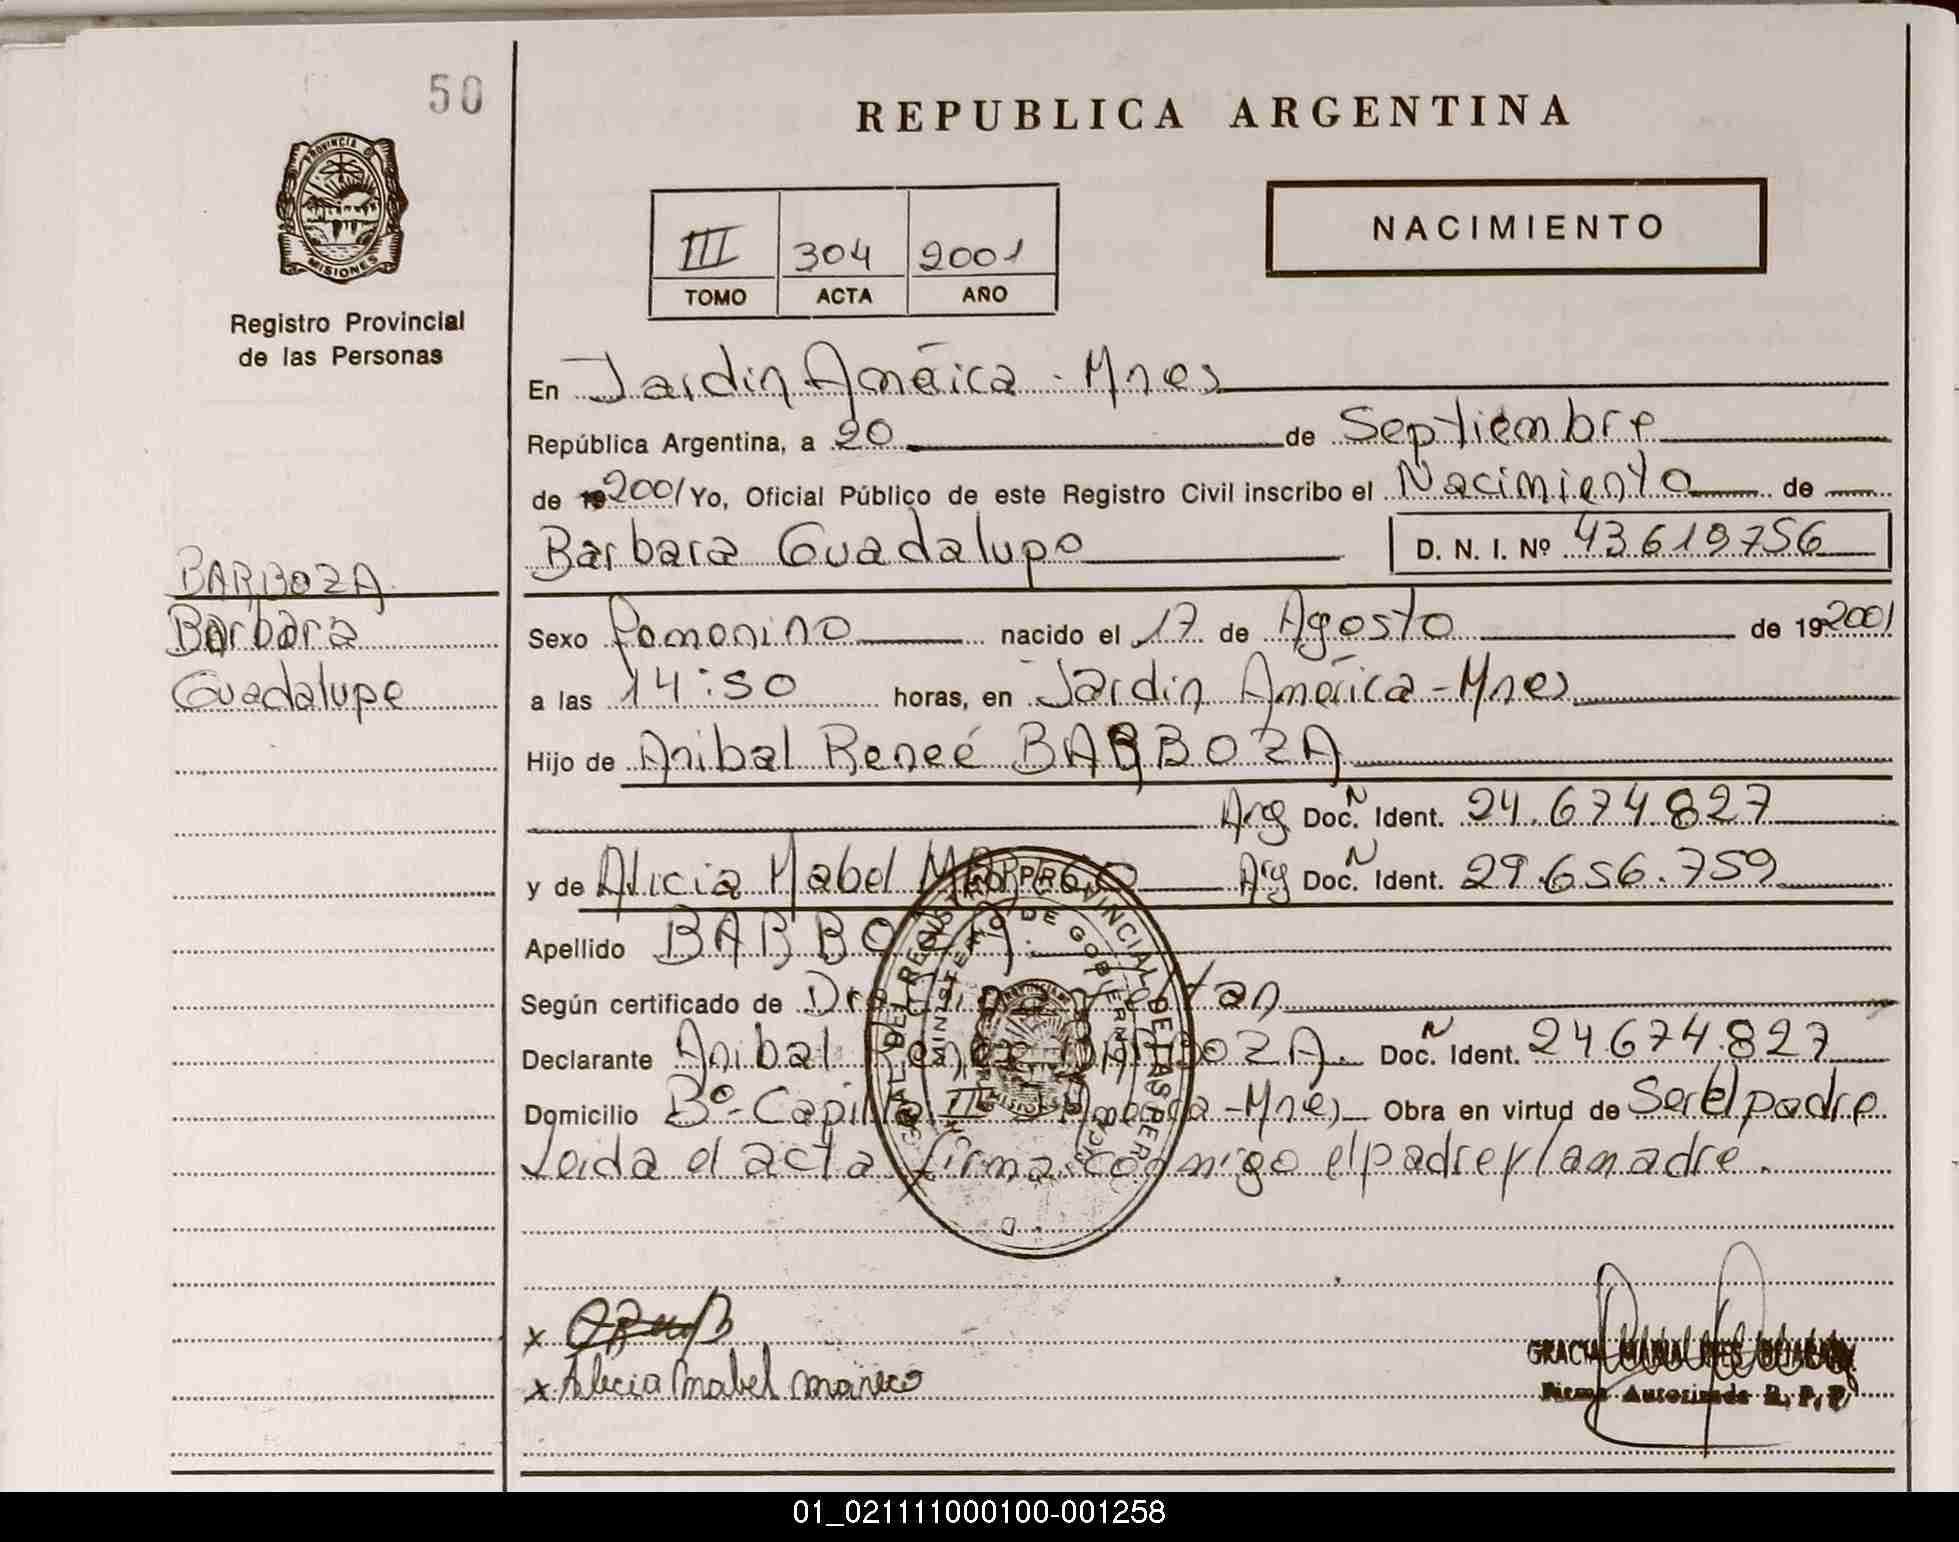 50
REPUBLICA ARGENTINA
PROVINCIA DE
MISIONES
Registro Provincial
de las Personas
NACIMIENTO
III 304 2001
TOMO ACTA AÑO
En Jardin América - Mnes
República Argentina, a 20 de Septiembre
de 19 2001 Yo, Oficial Público de este Registro Civil inscribo el Nacimiento de
Barbara Guadalupe D. N. I. Nº 43.619.756
BARBOZA
Barbara
Guadalupe
Sexo femenino nacido el 17 de Agosto de 19 2001
a las 14:50 horas, en Jardin América - Mnes
Hijo de Anibal Reneé BARBOZA
Arg Doc. Ñ Ident. 24.674.827
y de Alicia Mabel Arg Doc. Ñ Ident. 29.656.759
Apellido BARBOZA.
Según certificado de
Declarante Anibal BARBOZA. Doc. Ñ Ident. 24674.827
Domicilio Bº - América - Mnes Obra en virtud de Ser el padre
Leida el acta firma conmigo el padre y la madre.
MINISTERIO DE GOBIERNO
x
x Alicia mabel mareco
Firma Autorizada R. P. P.
01_021111000100-001258